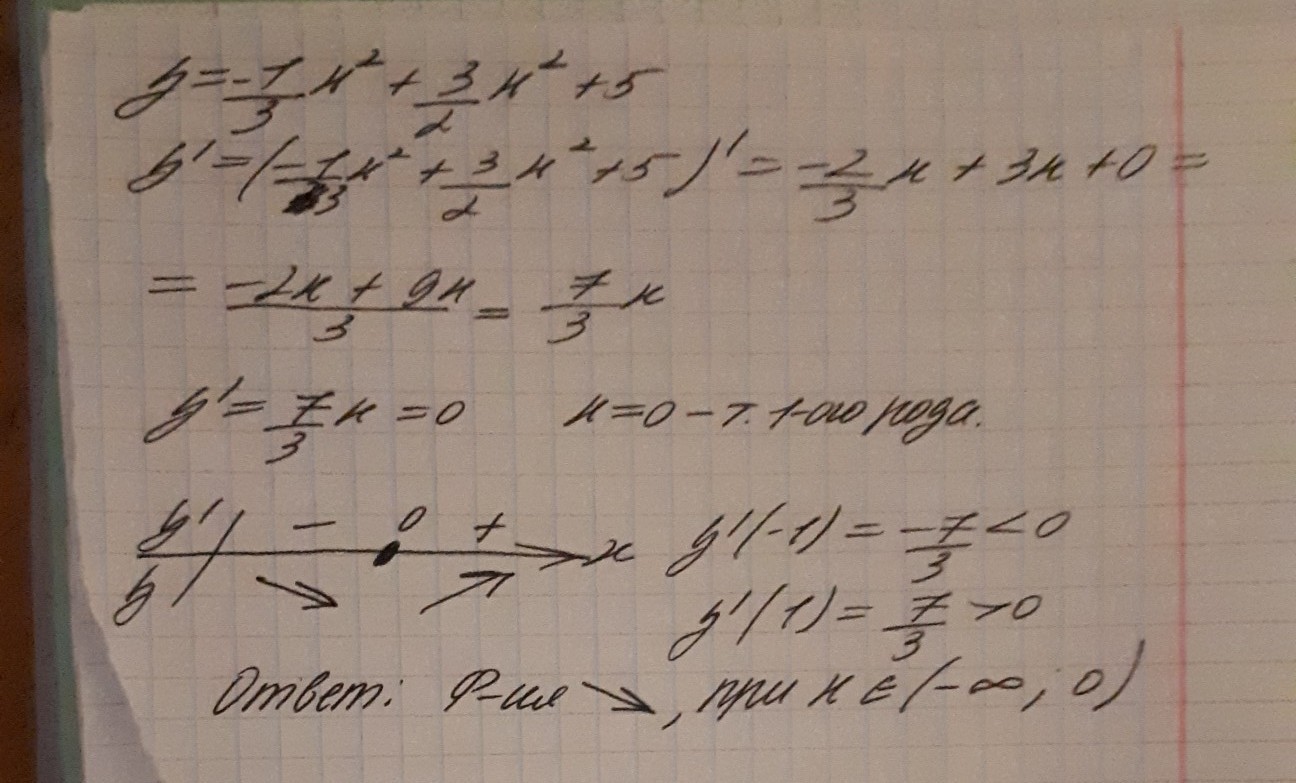 y = -1/3 x² + 3/2 x² + 5
y' = (-1/3 x² + 3/2 x² + 5)' = -2/3 x + 3x + 0 =
= (-2x + 9x)/3 = 7/3 x
y' = 7/3 x = 0 x = 0 – т. 1-ого рода.
y' - 0 + x y'(-1) = -7/3 < 0
y ↘ ↗ y'(1) = 7/3 > 0
Ответ: Ф-ия ↘, при x ∈ (-∞; 0)